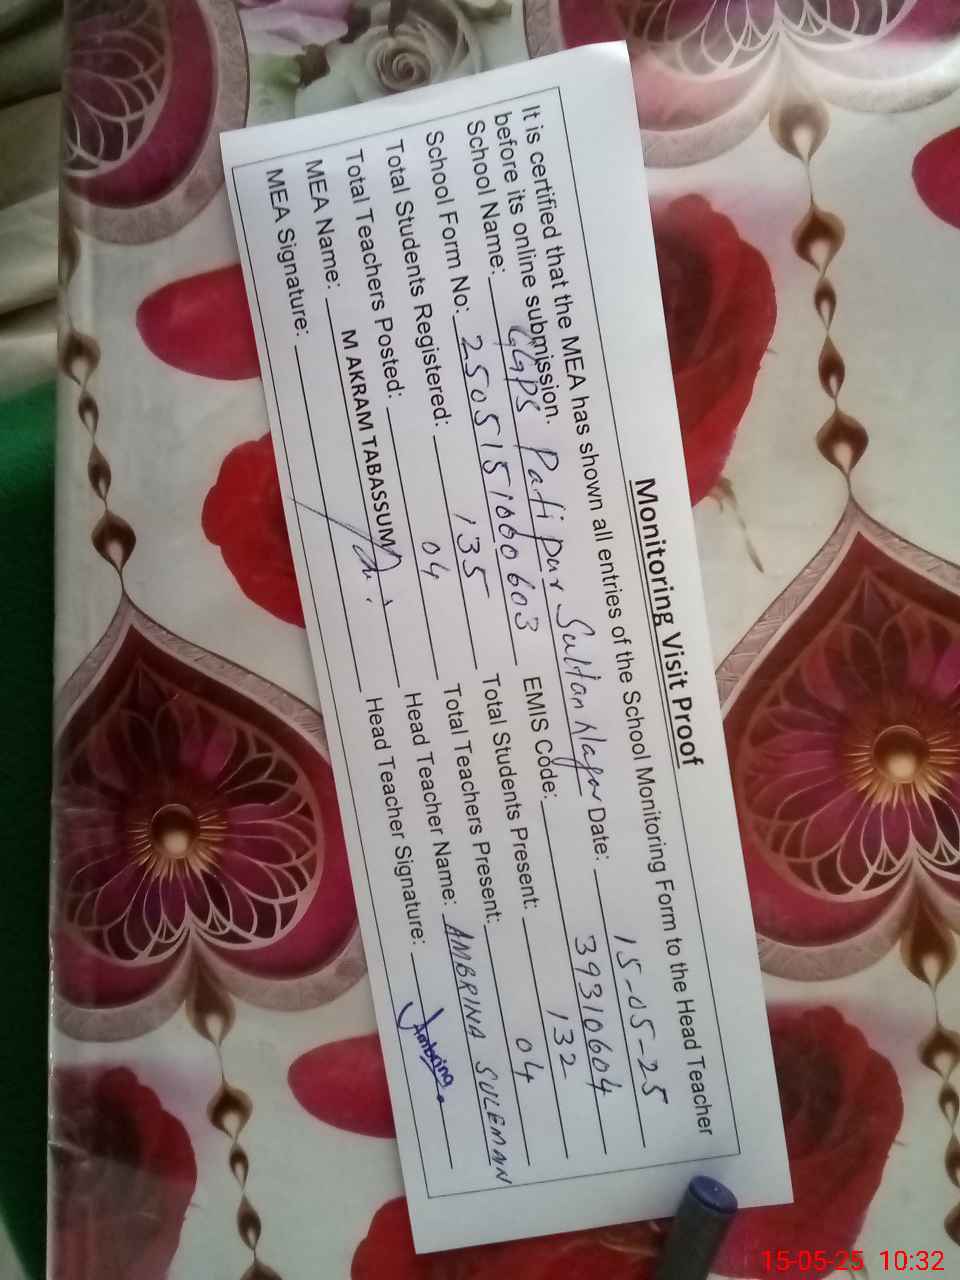 Monitoring Visit Proof
It is certified that the MEA has shown all entries of the School Monitoring Form to the Head Teacher
before its online submission.
School Name: GGPS Patipur Sultan Nagar Date: 15-05-25
School Form No: 2505151000603 EMIS Code: 39310604
Total Students Registered: 135 Total Students Present: 132
Total Teachers Posted: 04 Total Teachers Present: 04
MEA Name: M AKRAM TABASSUM Head Teacher Name: AMBRINA SULEMAN
MEA Signature: Head Teacher Signature: Ambrina
15-05-25 10:32